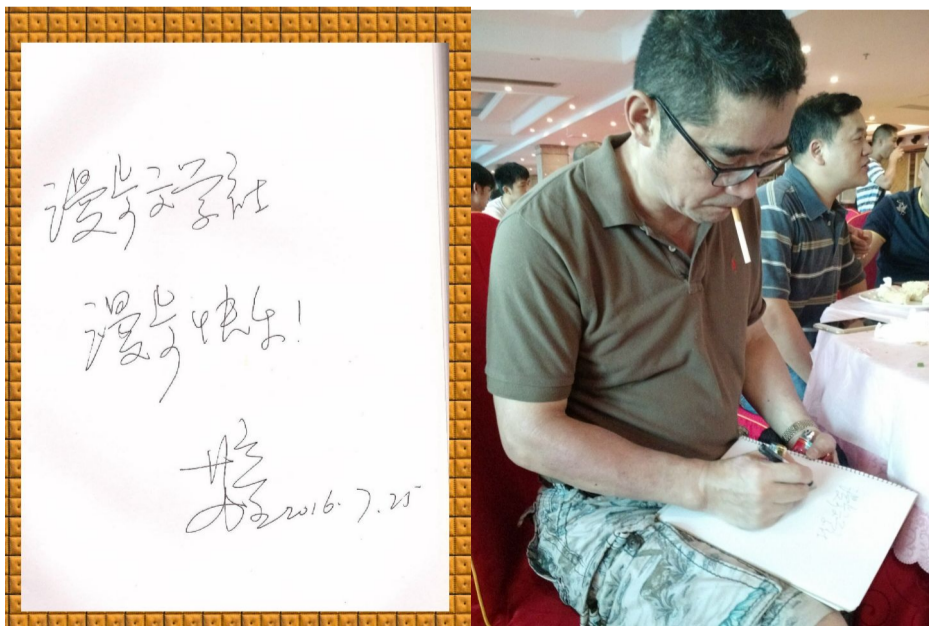 漫步文学社
漫步快乐!
2016.7.25